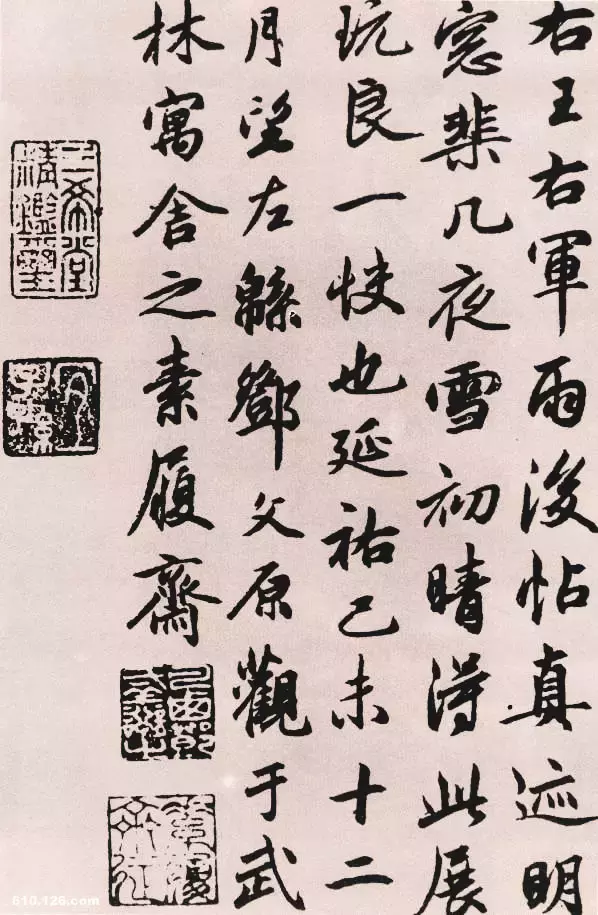 右王右軍雨後帖真迹明
窓棐几夜雪初晴得此展
玩良一快也延祐己未十二
月望左緜鄧文原觀于武
林寓舍之素履齋
三希堂
精鑑璽
宜
子孫
610.126.com